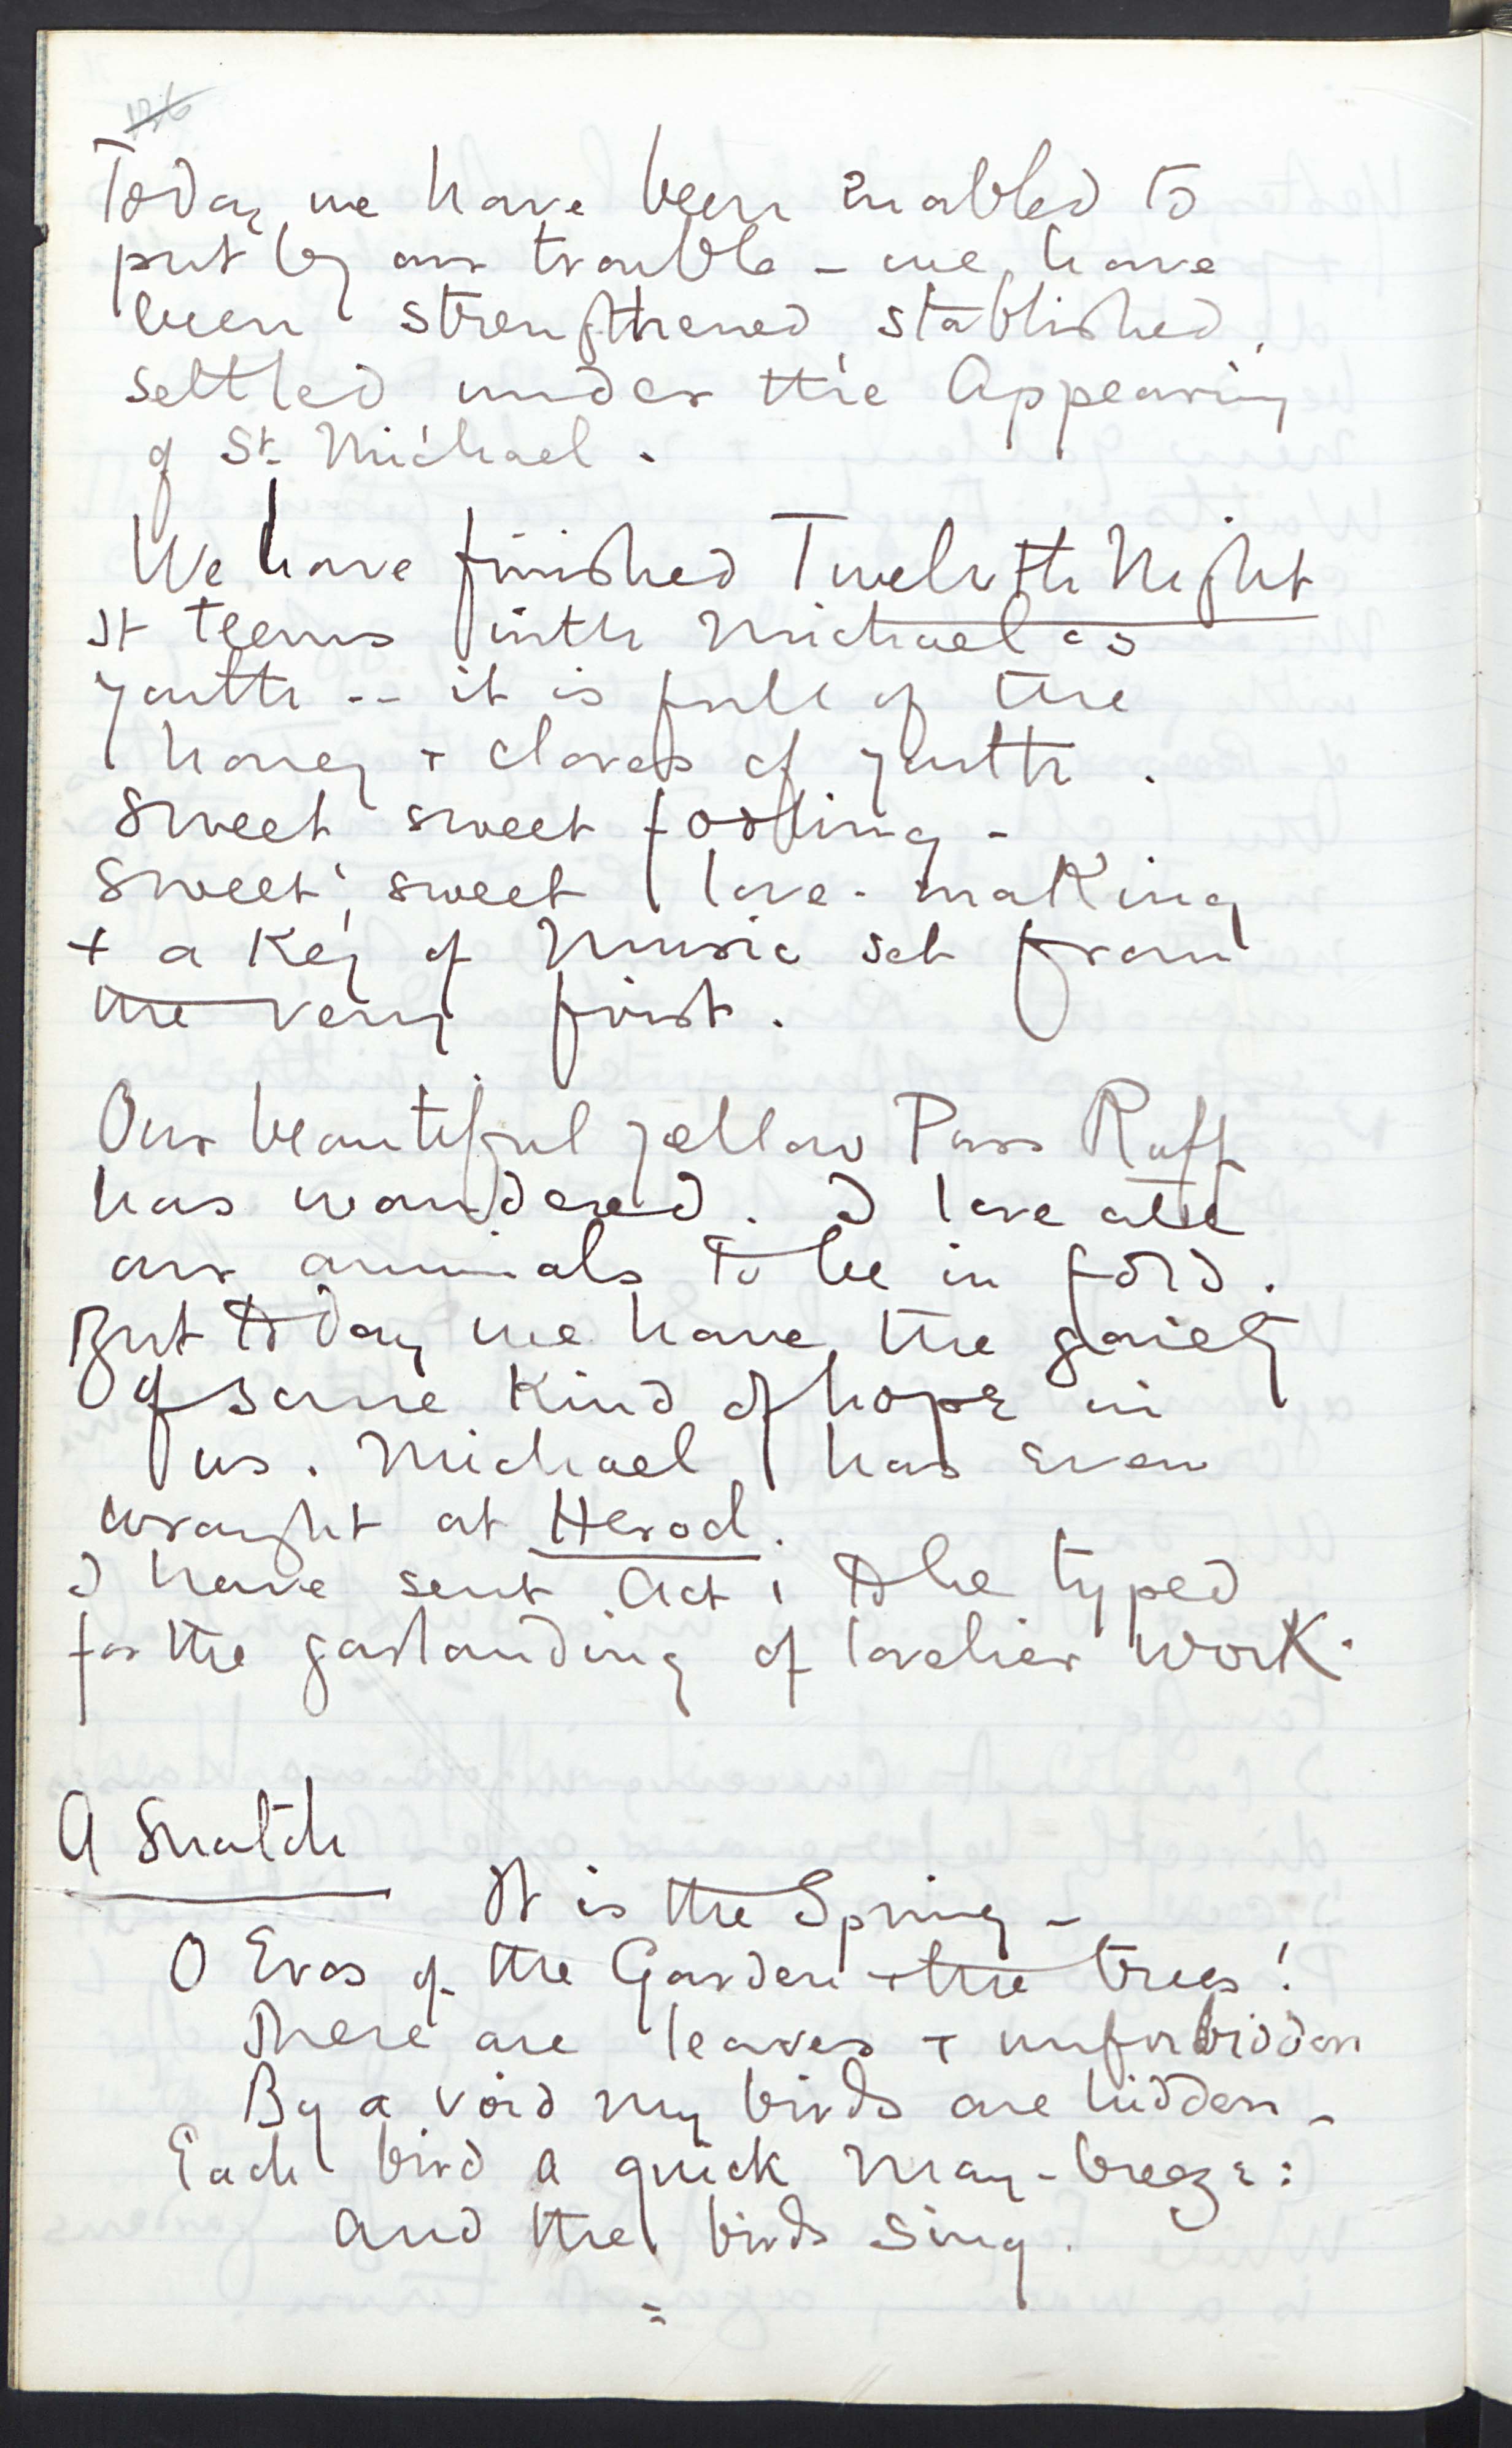 126
Today we have been enabled to
put by our trouble - we have
been strengthened stablished,
settled under the Appearing
of St. Michael.
We have finished Twelvth Night
It teems with Michael's
youth -- it is full of the
honey + cloves of youth.
Sweet sweet fooling -
Sweet, sweet love-making
+ a key of music set from
the very first.
Our beautiful yellow Puss Ruff
has wandered. I love all
our animals to be in fold.
But today we have the gaiety
of some kind of hope in
us. Michael has even
wrought at Herod.
I have sent Act i to be typed
for the garlanding of lovelier work.
A Snatch
It is the Spring -
O Eves of the Garden + the trees!
There are leaves + unforbidden
By a void my birds are hidden -
Each bird a quick May-breeze:
And the birds sing.
=